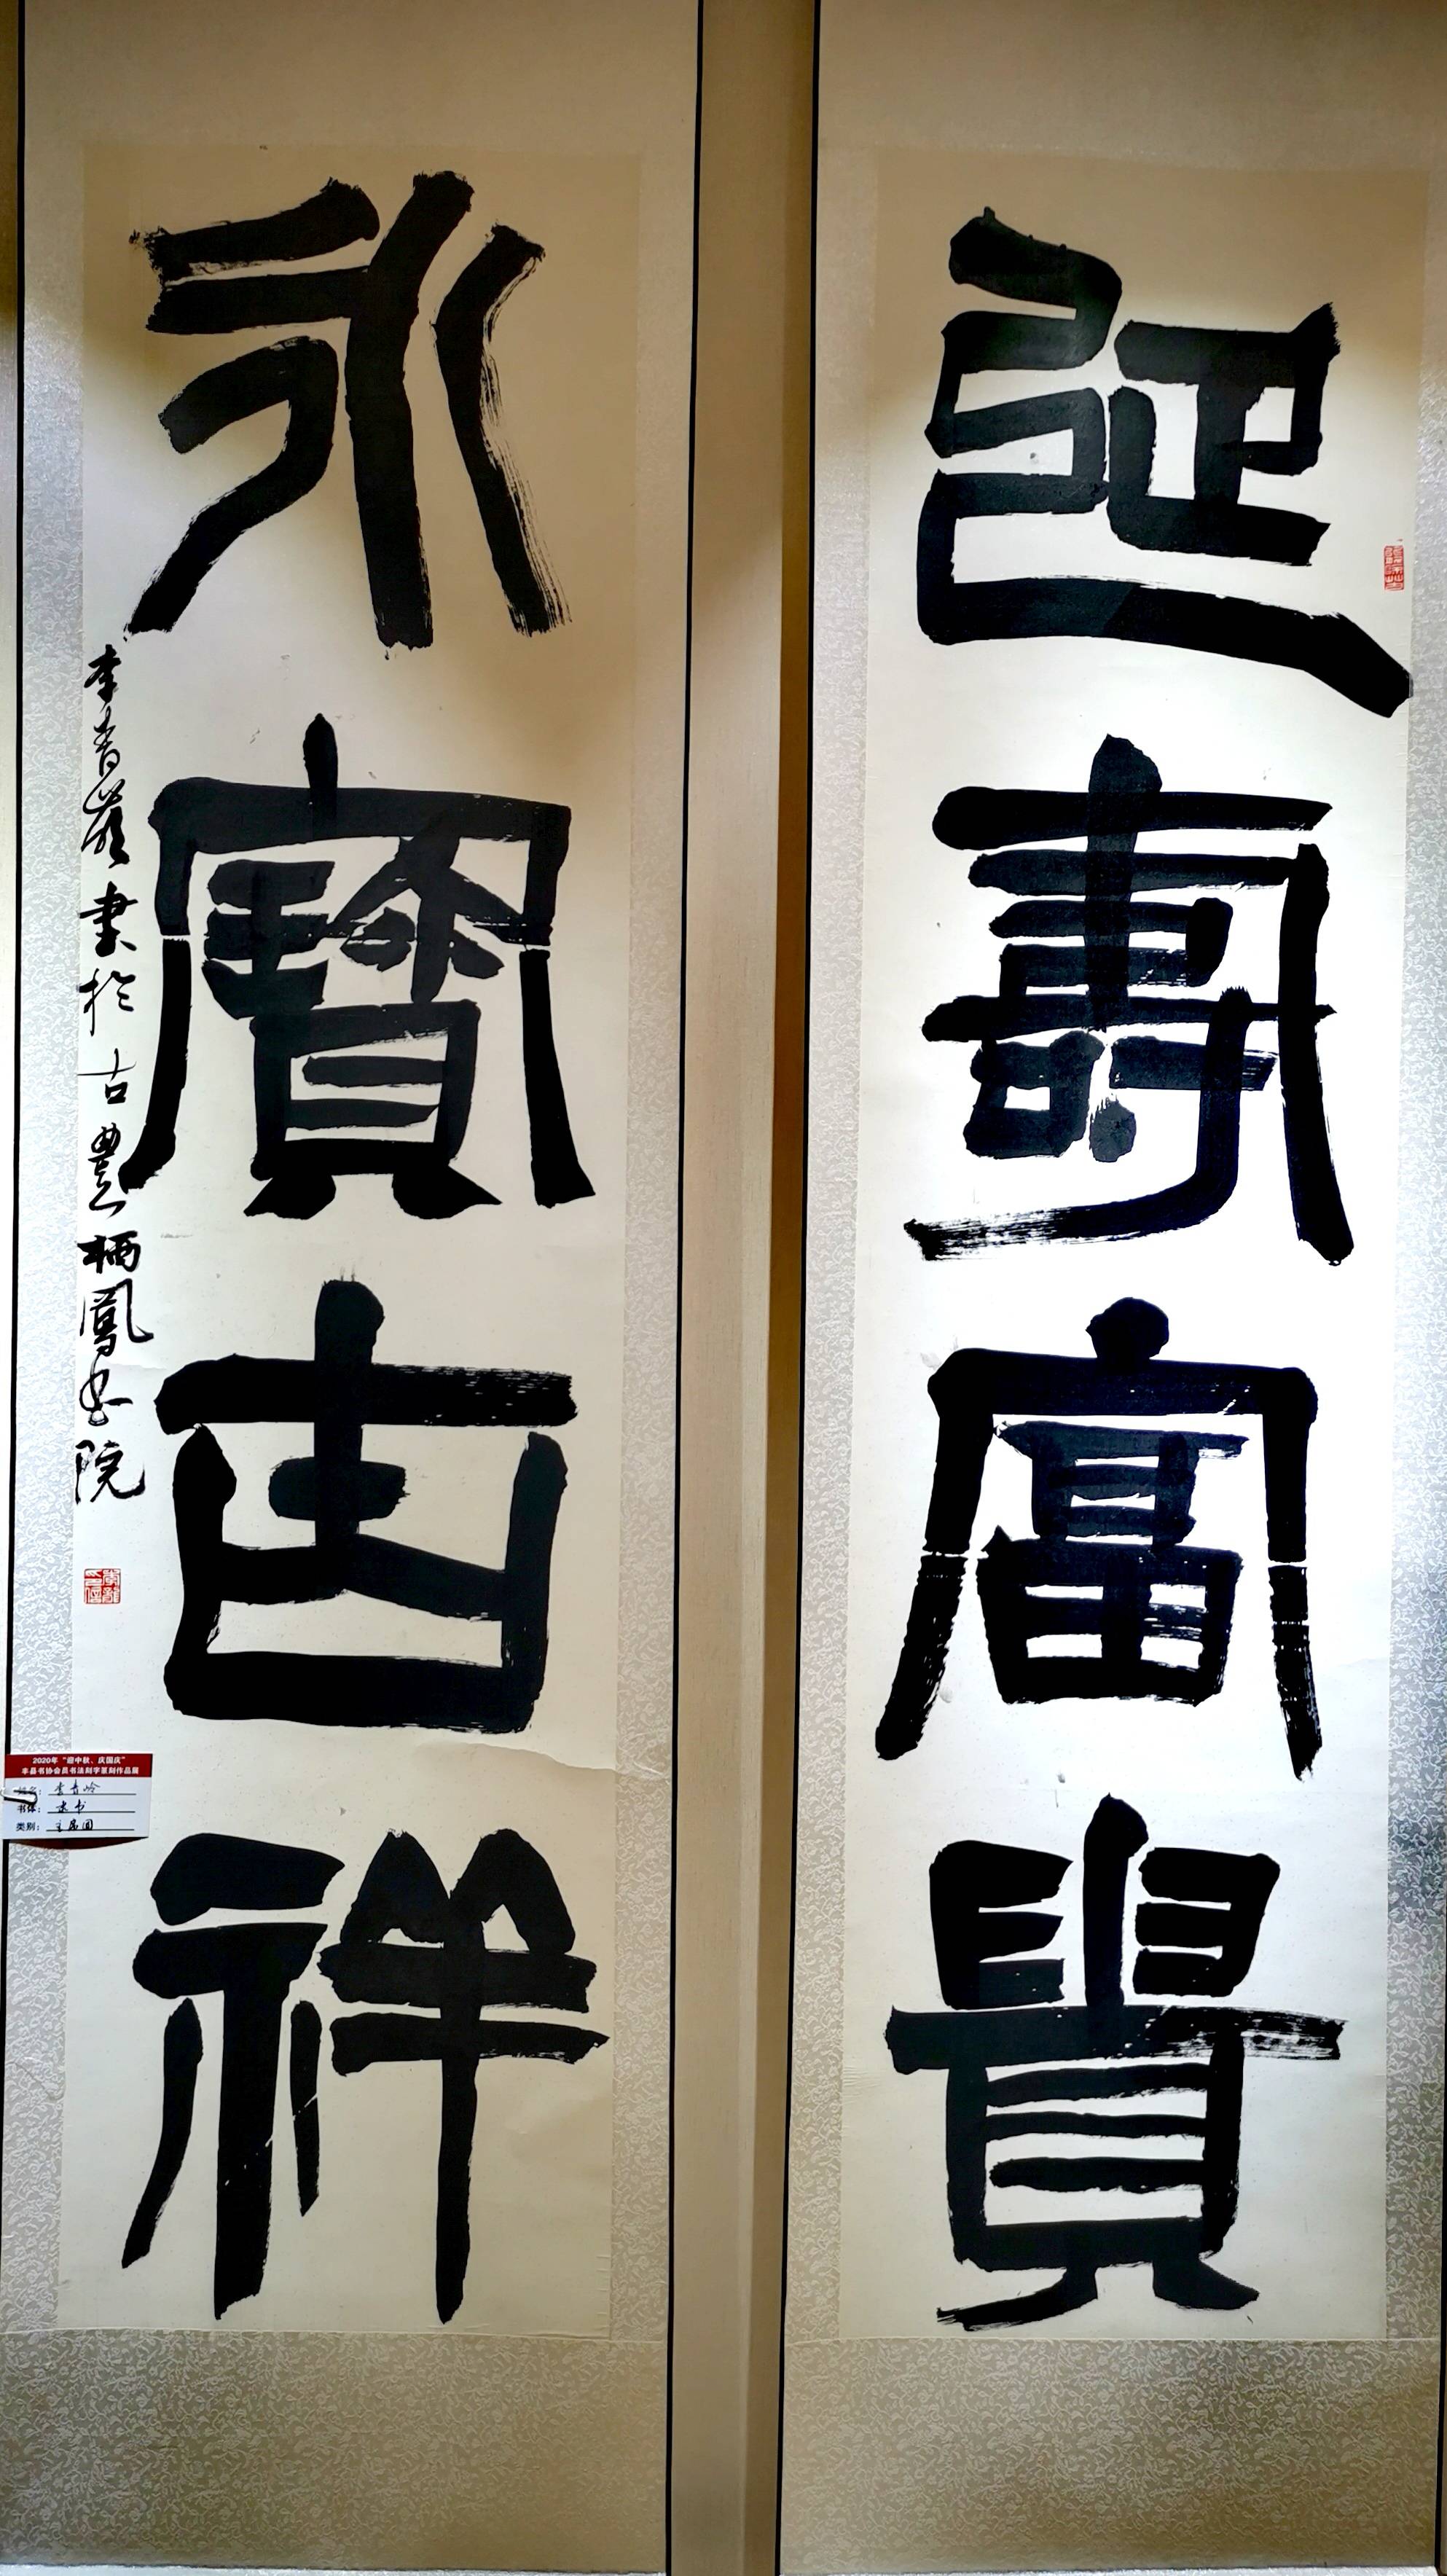 延壽富貴
永寶吉祥
李青嶺書於古豐栖鳳書院
2020年“迎中秋、庆国庆”
丰县书协会员书法刻字篆刻作品展
姓名：李青岭
书体：隶书
类别：